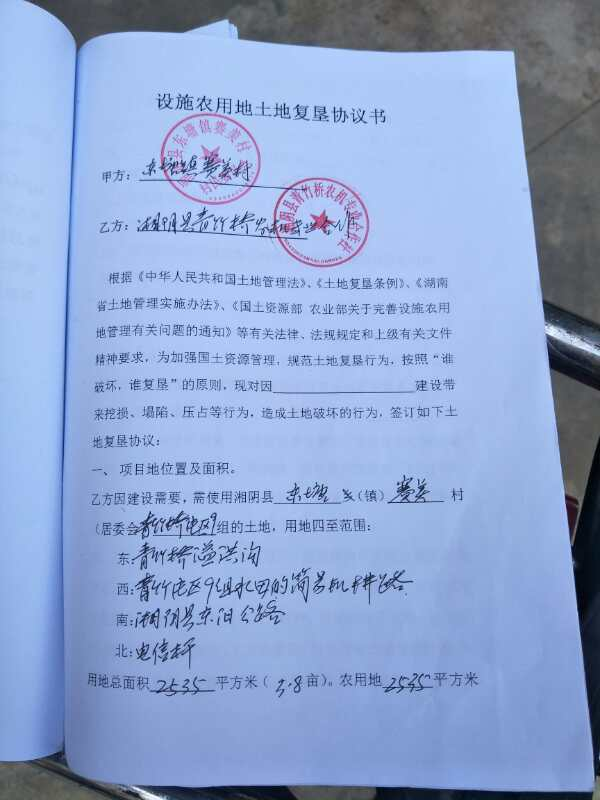 设施农用地土地复垦协议书
甲方：东塘镇赛美村
乙方：湘阴县青竹桥农机专业合作社
根据《中华人民共和国土地管理法》、《土地复垦条例》、《湖南
省土地管理实施办法》、《国土资源部 农业部关于完善设施农用
地管理有关问题的通知》等有关法律、法规规定和上级有关文件
精神要求，为加强国土资源管理，规范土地复垦行为，按照“谁
破坏，谁复垦”的原则，现对因建设带
来挖损、塌陷、压占等行为，造成土地破坏的行为，签订如下土
地复垦协议：
一、项目地位置及面积。
乙方因建设需要，需使用湘阴县 东塘 （镇） 赛美 村
（居委会青竹片区9组的土地，用地四至范围：
东：青竹桥溢洪沟
西：青竹片区9组水田的简易机耕路
南：湘阴县东汨公路
北：电信杆
用地总面积 2535 平方米（ 3.8 亩）。农用地 2535 平方米
东塘镇赛美村
湘阴县青竹桥农机专业合作社